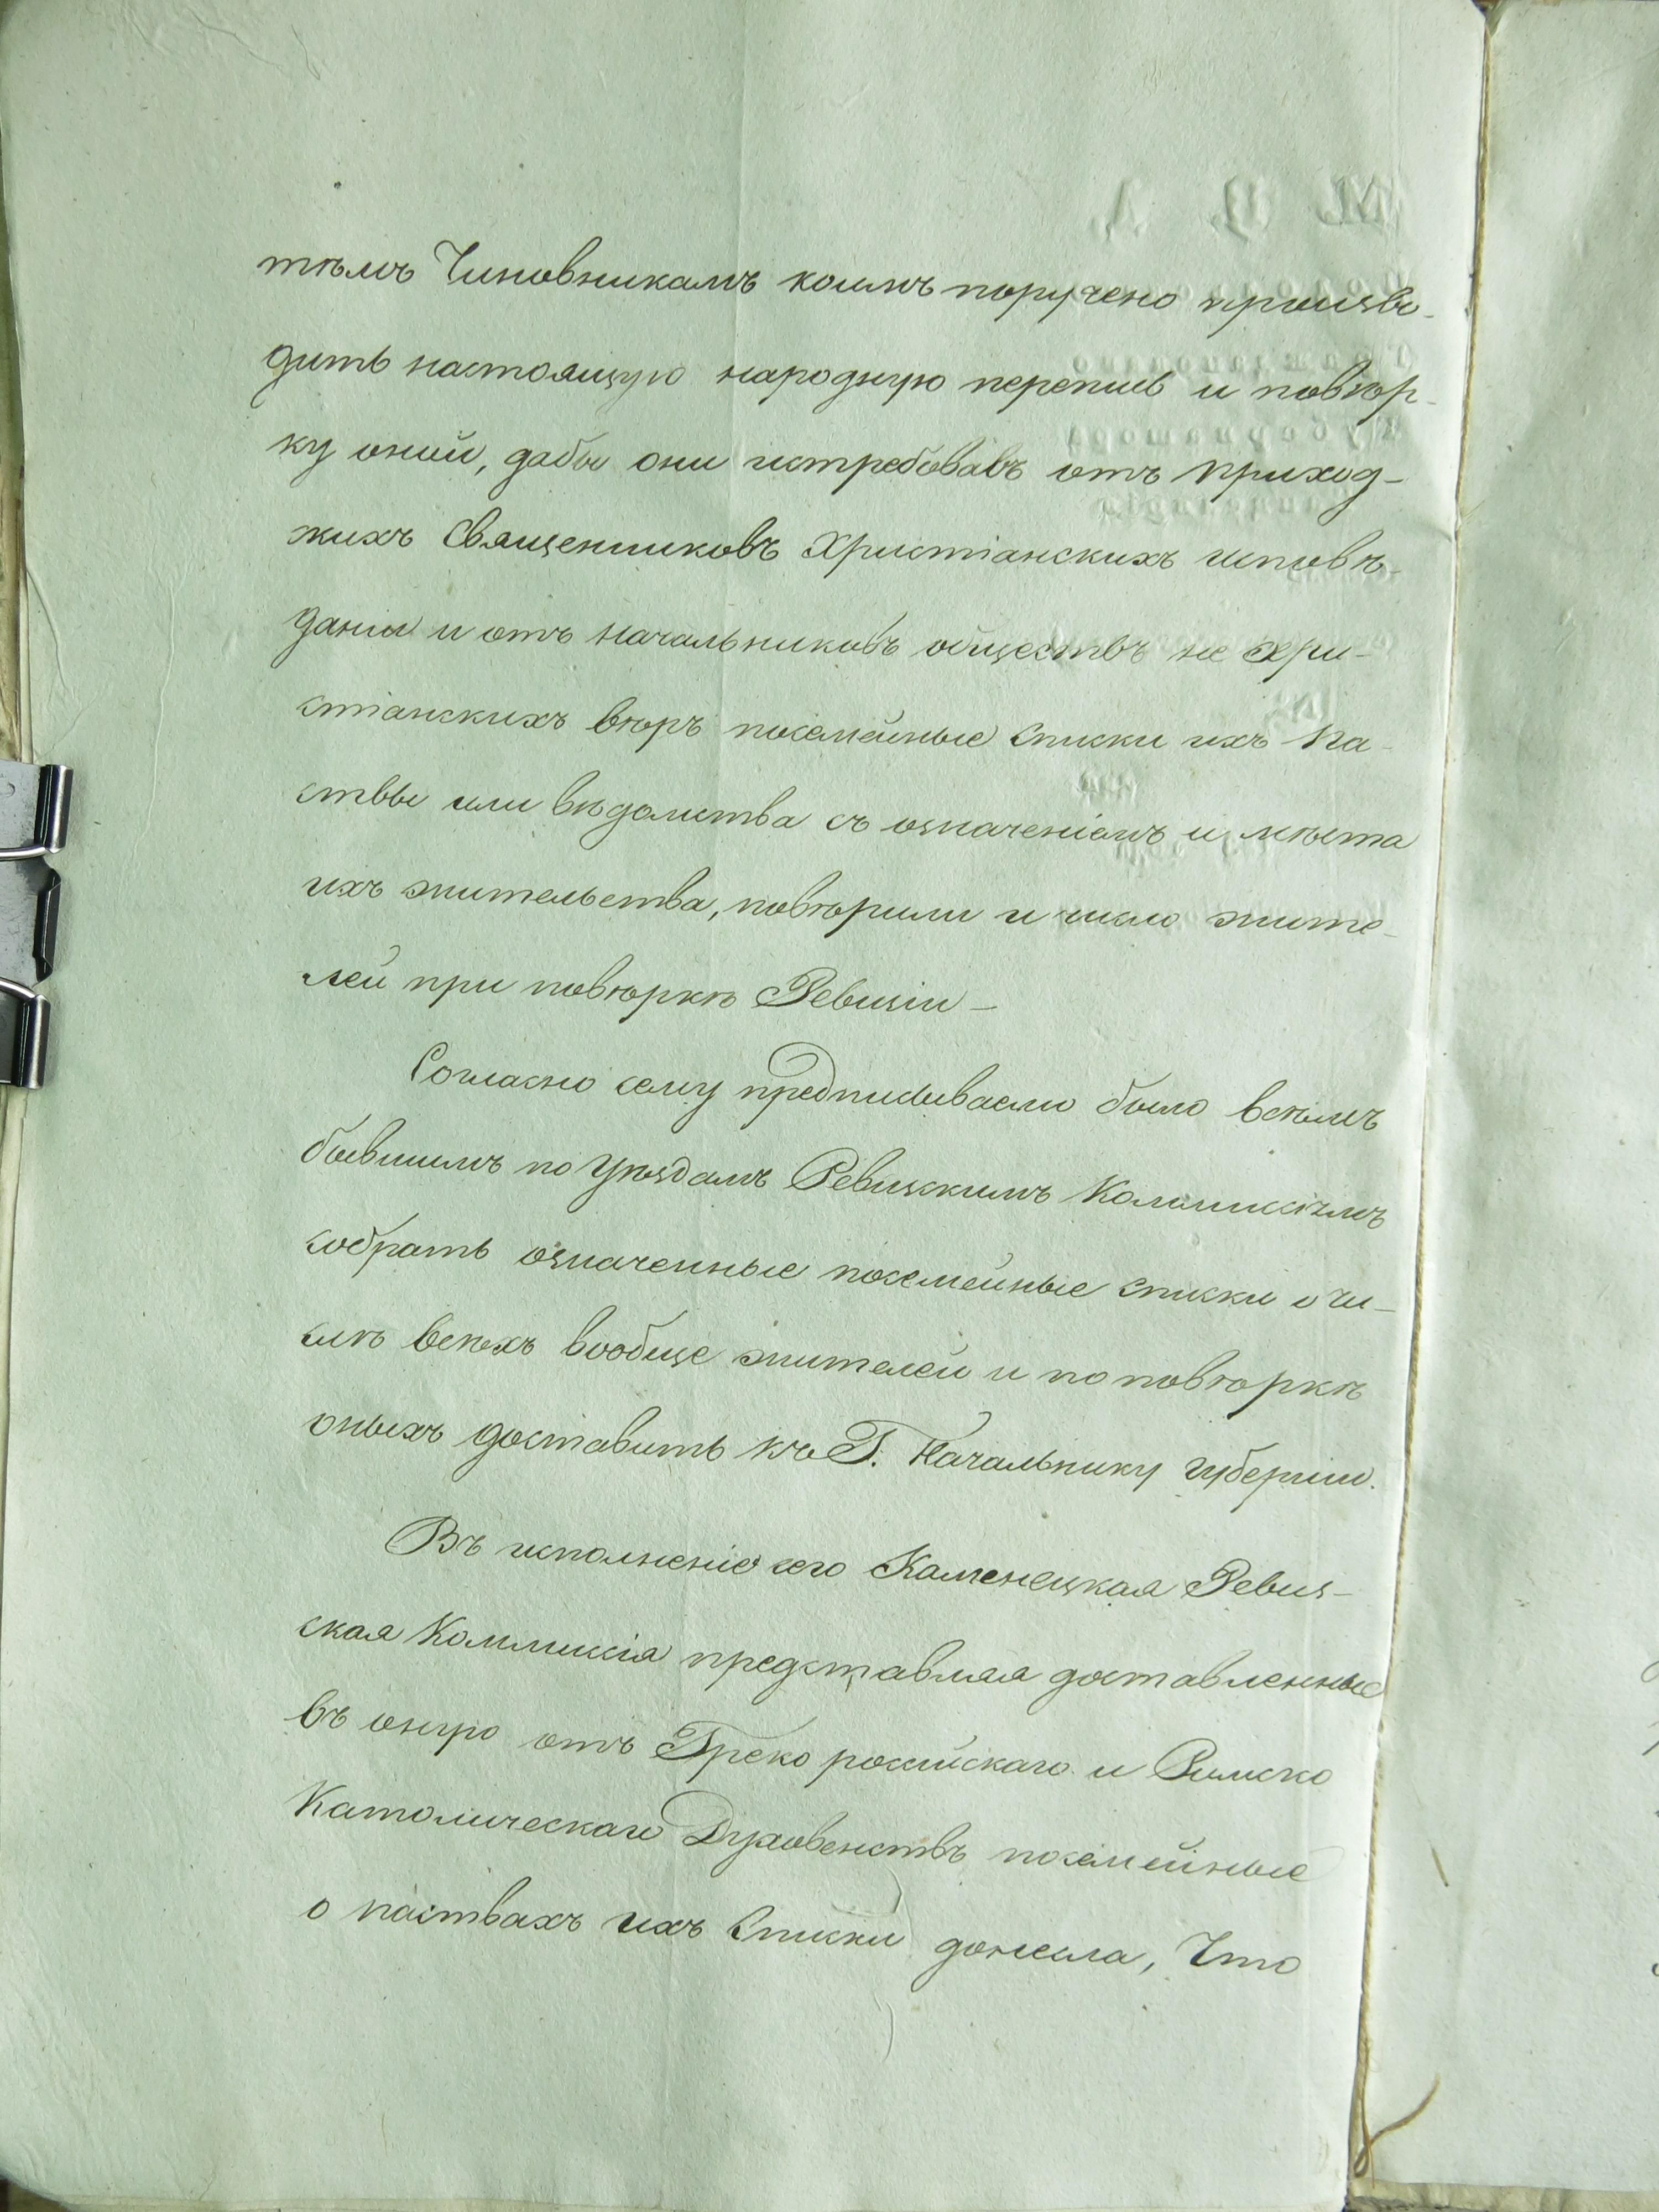 тѣмъ Чиновникамъ коимъ поручено произво-
дить настоящую народную перепись и повѣр-
ку оной, дабы они истребовавъ отъ приход-
жихъ Священниковъ Христіанскихъ исповѣ-
даніи и отъ начальниковъ обществъ не хри-
стіанскихъ вѣръ посемейные списки ихъ па-
ствы или вѣдомства съ означеніемъ и мѣста
ихъ жительства, повѣрили и число жите-
лей при повѣркѣ Ревизіи –
Согласно сему предписываемо было всѣмъ
бывшимъ по Уѣздамъ Ревизскимъ Коммиссіямъ
собрать означенные посемейные списки о чи-
слѣ всѣхъ вообще жителей и по повѣркѣ
оныхъ доставить къ Г. Начальнику Губерніи.
Въ исполненіе сего Каменецкая Ревиз-
ская Коммиссія представляя доставленные
въ оную отъ Греко россійскаго и Римско
Католическаго Духовенствъ посемейные
о паствахъ ихъ Списки донесла, Что